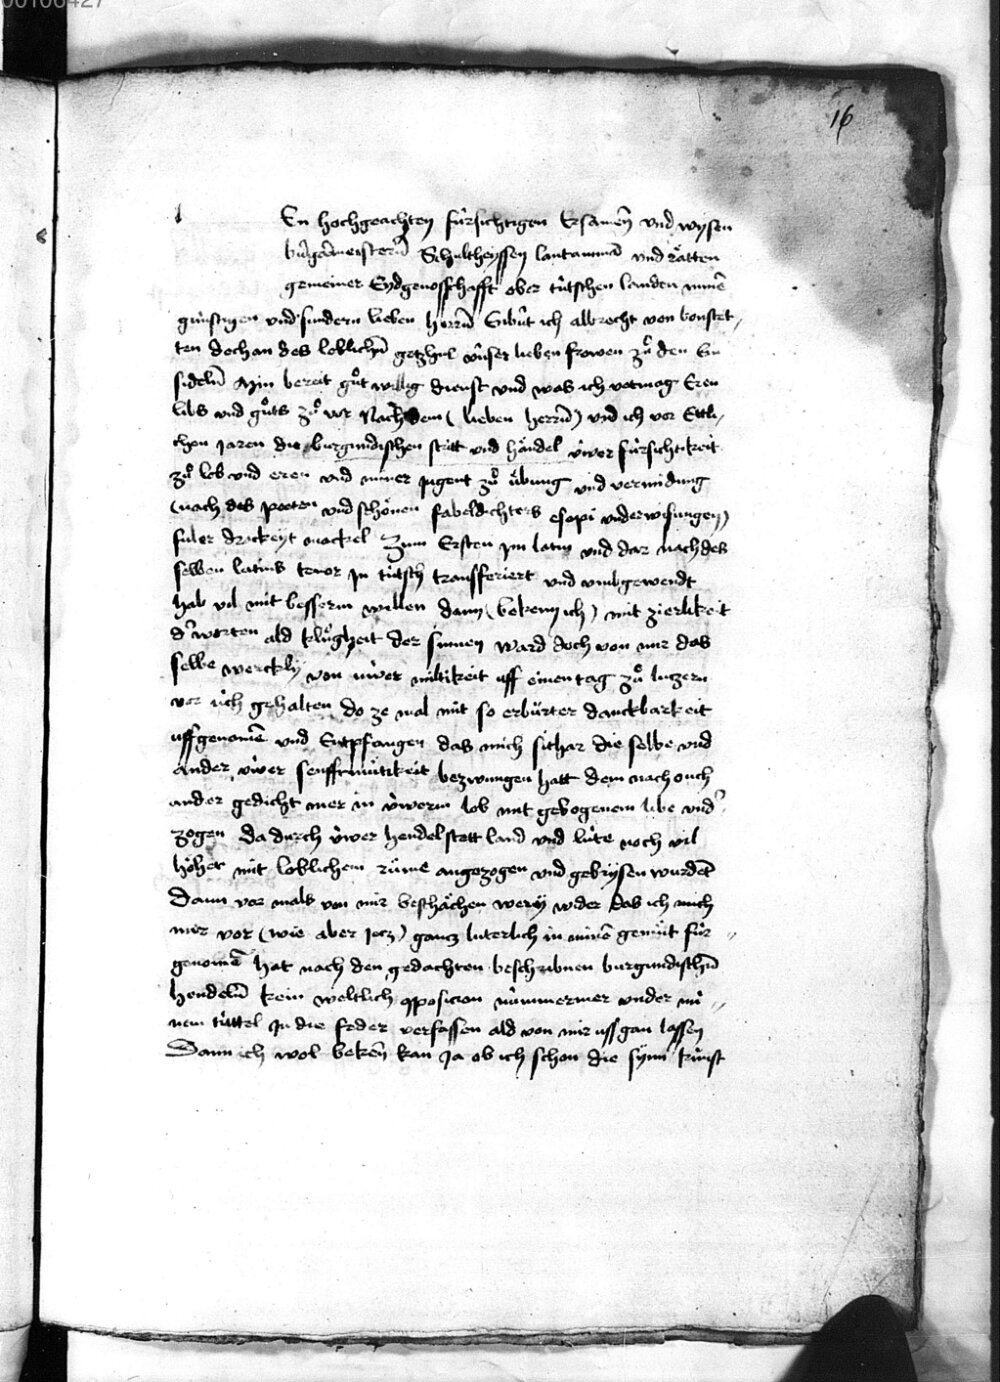 00106427
16
En hochgeachten fürsichtigen Ersamē vnd wysen
burgermeistern̄ Schultheyssen lantamman vnd rätten
gemeiner Eydgenosschafft ober tütschen landen minē
günstigen vnd sundern lieben herrn̄ Enbüt ich albrecht von bonstet,
ten dechan des loblichen̄ gotzhus vnser lieben frowen zů den Ein
sideln̄ Min bereit gůt willig dienst vnd was ich vermag Eren
libs vnd gůts zů vor Nach dem (lieben herrn̄) vnd ich vor Ettli,
chen jaren die burgundischen stritt vnd händel üwer fürsichtikeit
zů lob vnd eren vnd miner jugent zů übung vnd vermidung
(nach des poeten vnd schönen fabeldichters esopi vnderwisungen)
fuler mackel Zum Ersten jm latin vnd dar nach des
selben latins tenor jn tütsch transferiert vnd vmbgewendt
hab vil mit besserm willen dann (bekenn ich) mit zierlikeit
d' worten ald klůgheit der sinnen ward doch von mir das
selbe wercklÿ von üwer miltikeit uff einen tag zů lutzern
vor üch gehalten do ze mal mit so erbürter danckbarkeit
uffgenomē vnd Entpfangen das mich sithar die selbe vnd
ander üwer senfftmütikeit bezwungen hatt dem nach ouch
ander gedicht mer in üwerm lob mit gebogenem libe vnd'
zogen da durch üwer hendel stett land vnd lüte noch vil
höher mit loblichem rüme angezogen vnd gebrysen wurdēt
Dann vor mals von mir beschächen werÿ wider das ich mich
mir vor (wie aber jetz) gantz luterlich in minē gemüt für
genomē hat nach den gedachten beschribnen burgundischn̄
hendeln̄ kein weltlich 9posicion nümmermer vnder mi
nem tüttel jn die feder verfassen ald von mir uss gan lassen
Dann ich wol bekēn kan ja ob ich schon die synn kunst